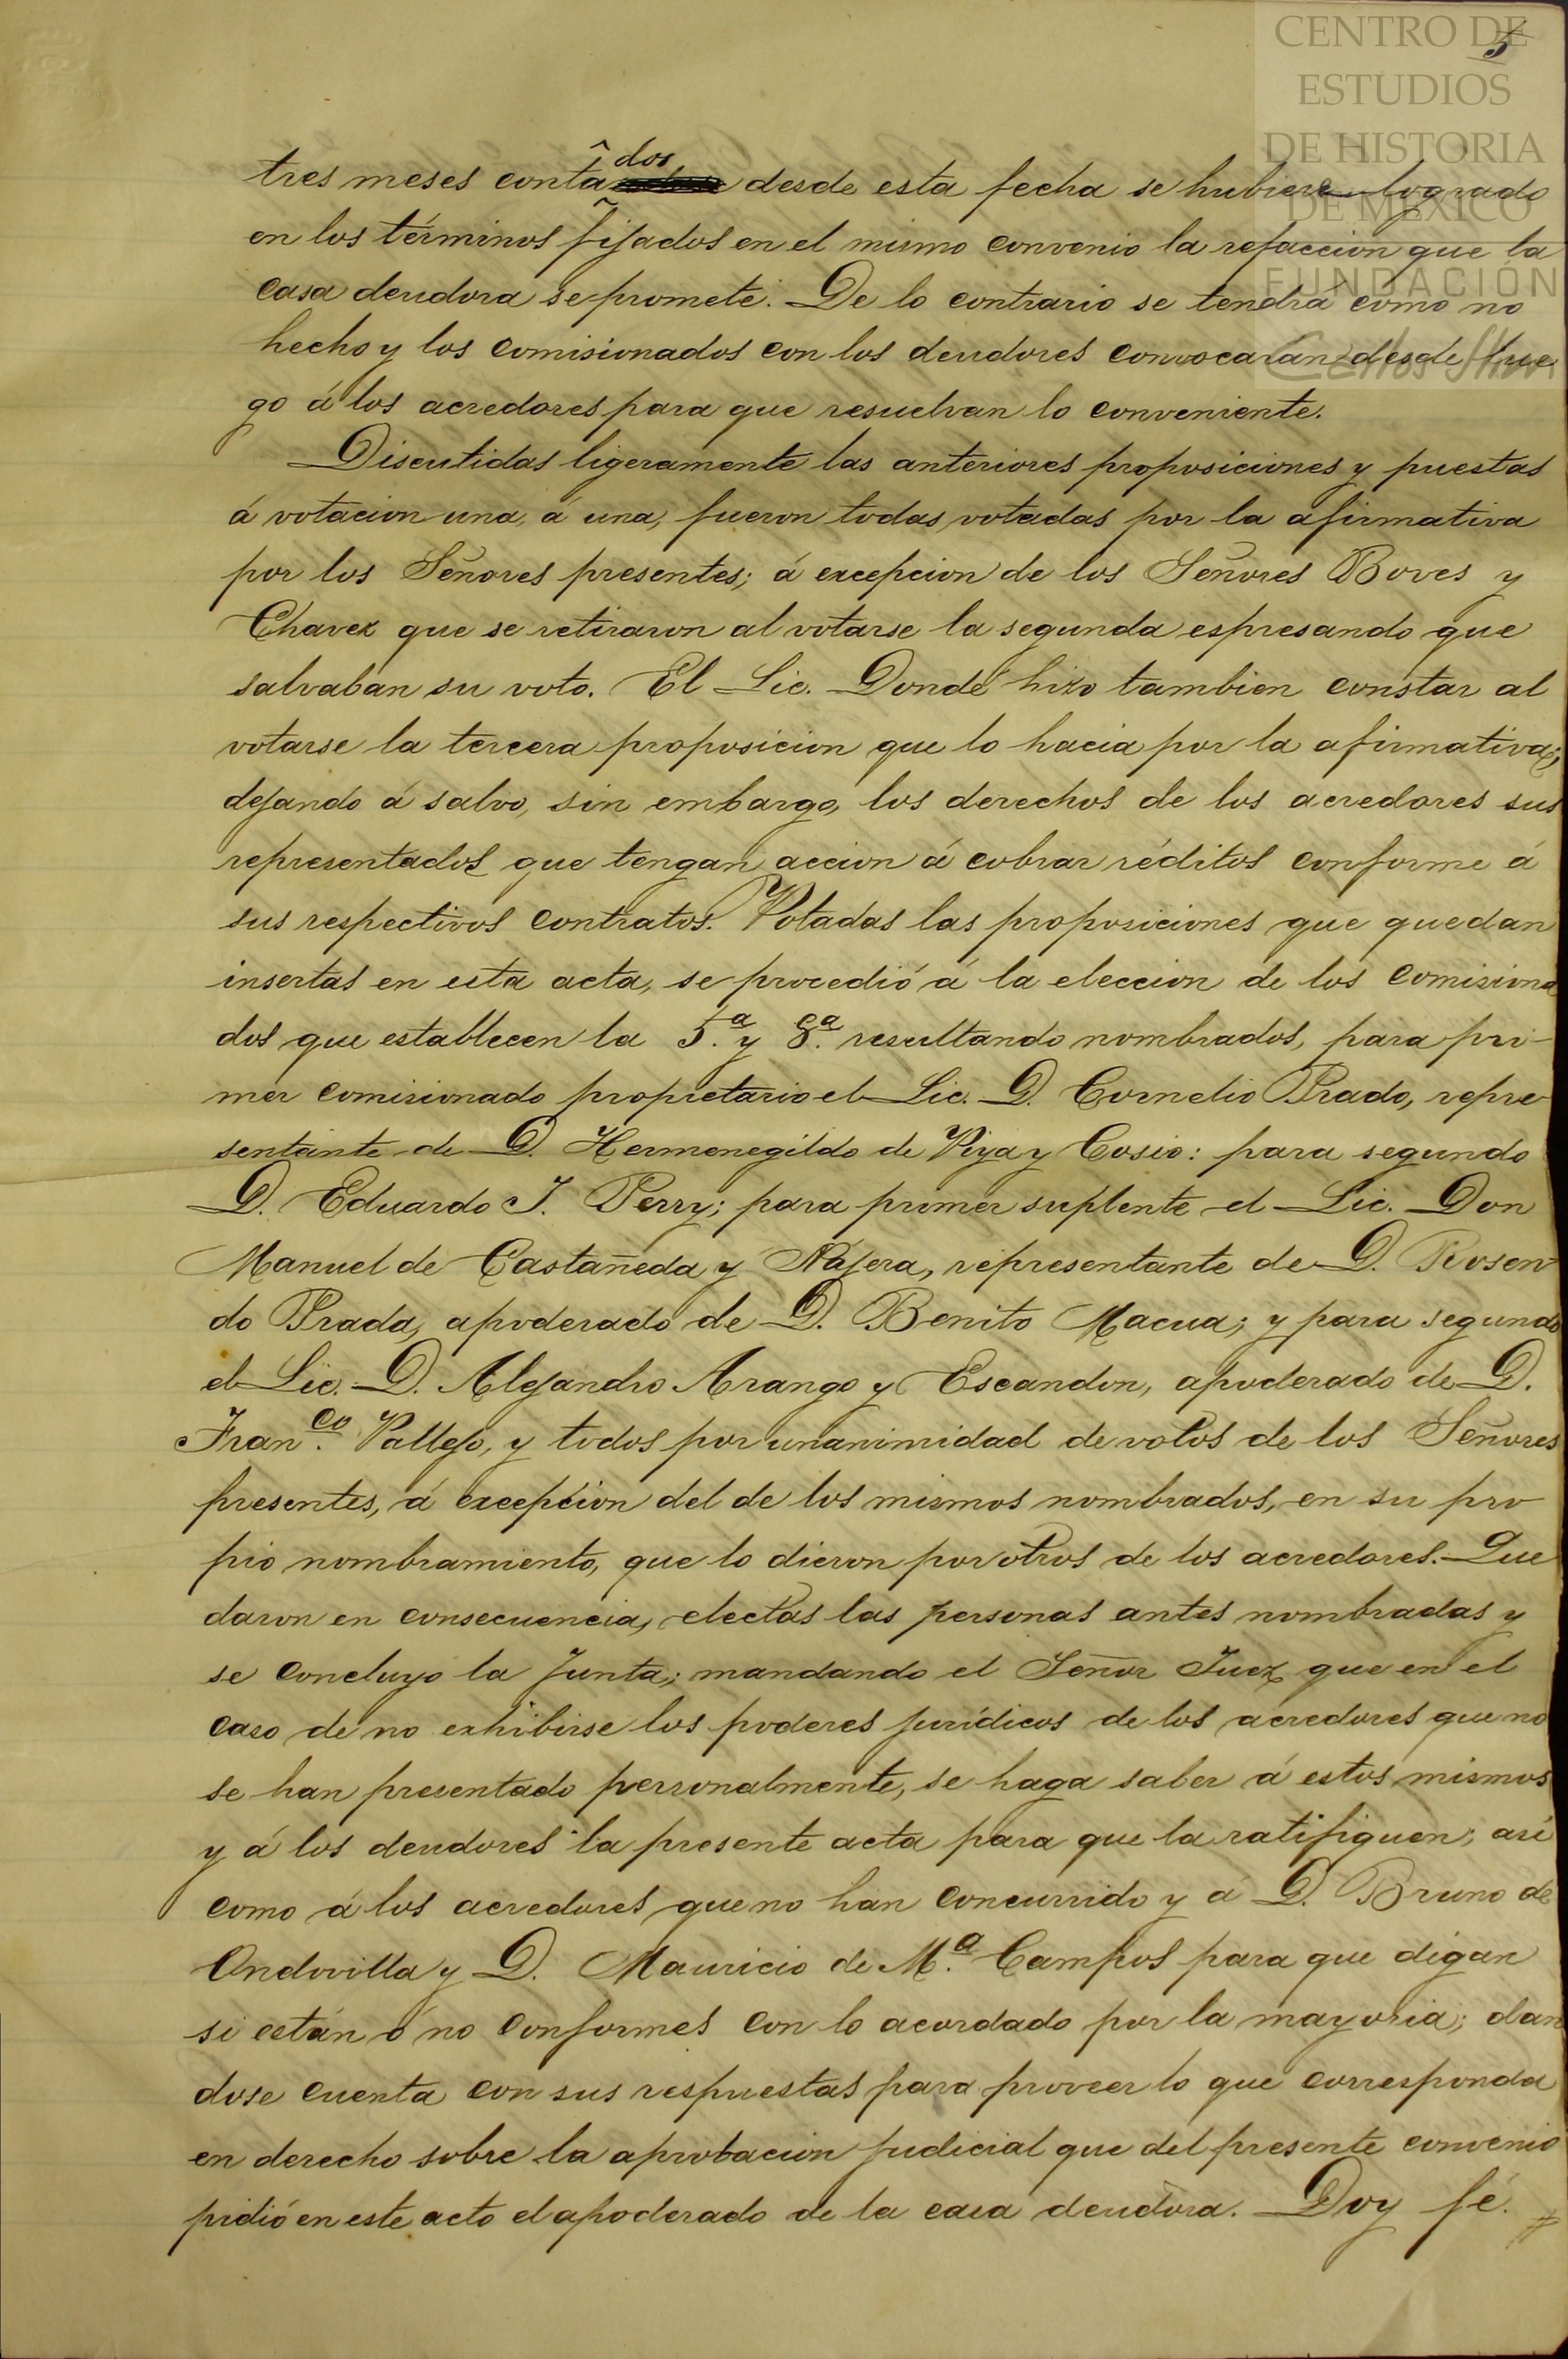 CENTRO DE
ESTUDIOS
DE HISTORIA
DE MÉXICO
FUNDACIÓN
Carlos Slim
5
tres meses contados desde esta fecha se hubiere logrado
en los términos fijados en el mismo convenio la refaccion que la
casa deudora se promete. De lo contrario se tendrá como no
hecho y los comisionados con los deudores convocarán desde lue
go á los acredores para que resuelvan lo conveniente.
Discutidas ligeramente las anteriores proposiciones y puestas
á votacion una á una, fueron todas votadas por la afirmativa
por los Señores presentes; á excepcion de los Señores Boves y
Chavez que se retiraron al votarse la segunda espresando que
salvaban su voto. El Lic. Dondé hizo tambien constar al
votarse la tercera proposicion que lo hacia por la afirmativa;
dejando á salvo, sin embargo, los derechos de los acredores sus
representados que tengan accion á cobrar réditos conforme á
sus respectivos contratos. Votadas las proposiciones que quedan
insertas en esta acta, se procedió á la eleccion de los comisiona
dos que establecen la 5.ª y 8.ª resultando nombrados, para pri-
mer comisionado propietario el Lic. D. Cornelio Prado, repre
sentante de D. Hermenegildo de Viya y Cosio: para segundo
D. Eduardo J. Perry; para primer suplente el Lic. Don
Manuel de Castañeda y Nájera, representante de D. Rosen
do Prada, apoderado de D. Benito Macua; y para segundo
el Lic. D. Alejandro Arango y Escandon, apoderado de D.
Fran.co Vallejo, y todos por unanimidad de votos de los Señores
presentes, á excepcion del de los mismos nombrados, en su pro
pio nombramiento, que lo dieron por otros de los acredores. Que
daron en consecuencia, electas las personas antes nombradas y
se concluyo la Junta; mandando el Señor Juez que en el
caso de no exhibirse los poderes jurídicos de los acredores que no
se han presentado personalmente, se haga saber á estos mismos
y á los deudores la presente acta para que la ratifiquen; asi
como á los acredores que no han concurrido y á D. Bruno de
Ondovilla y D. Mauricio de M.ª Campos para que digan
si están ó no conformes con lo acordado por la mayoria; dan
dose cuenta con sus respuestas para proveer lo que corresponda
en derecho sobre la aprobacion judicial que del presente convenio
pidió en este acto el apoderado de la casa deudora. Doy fé.